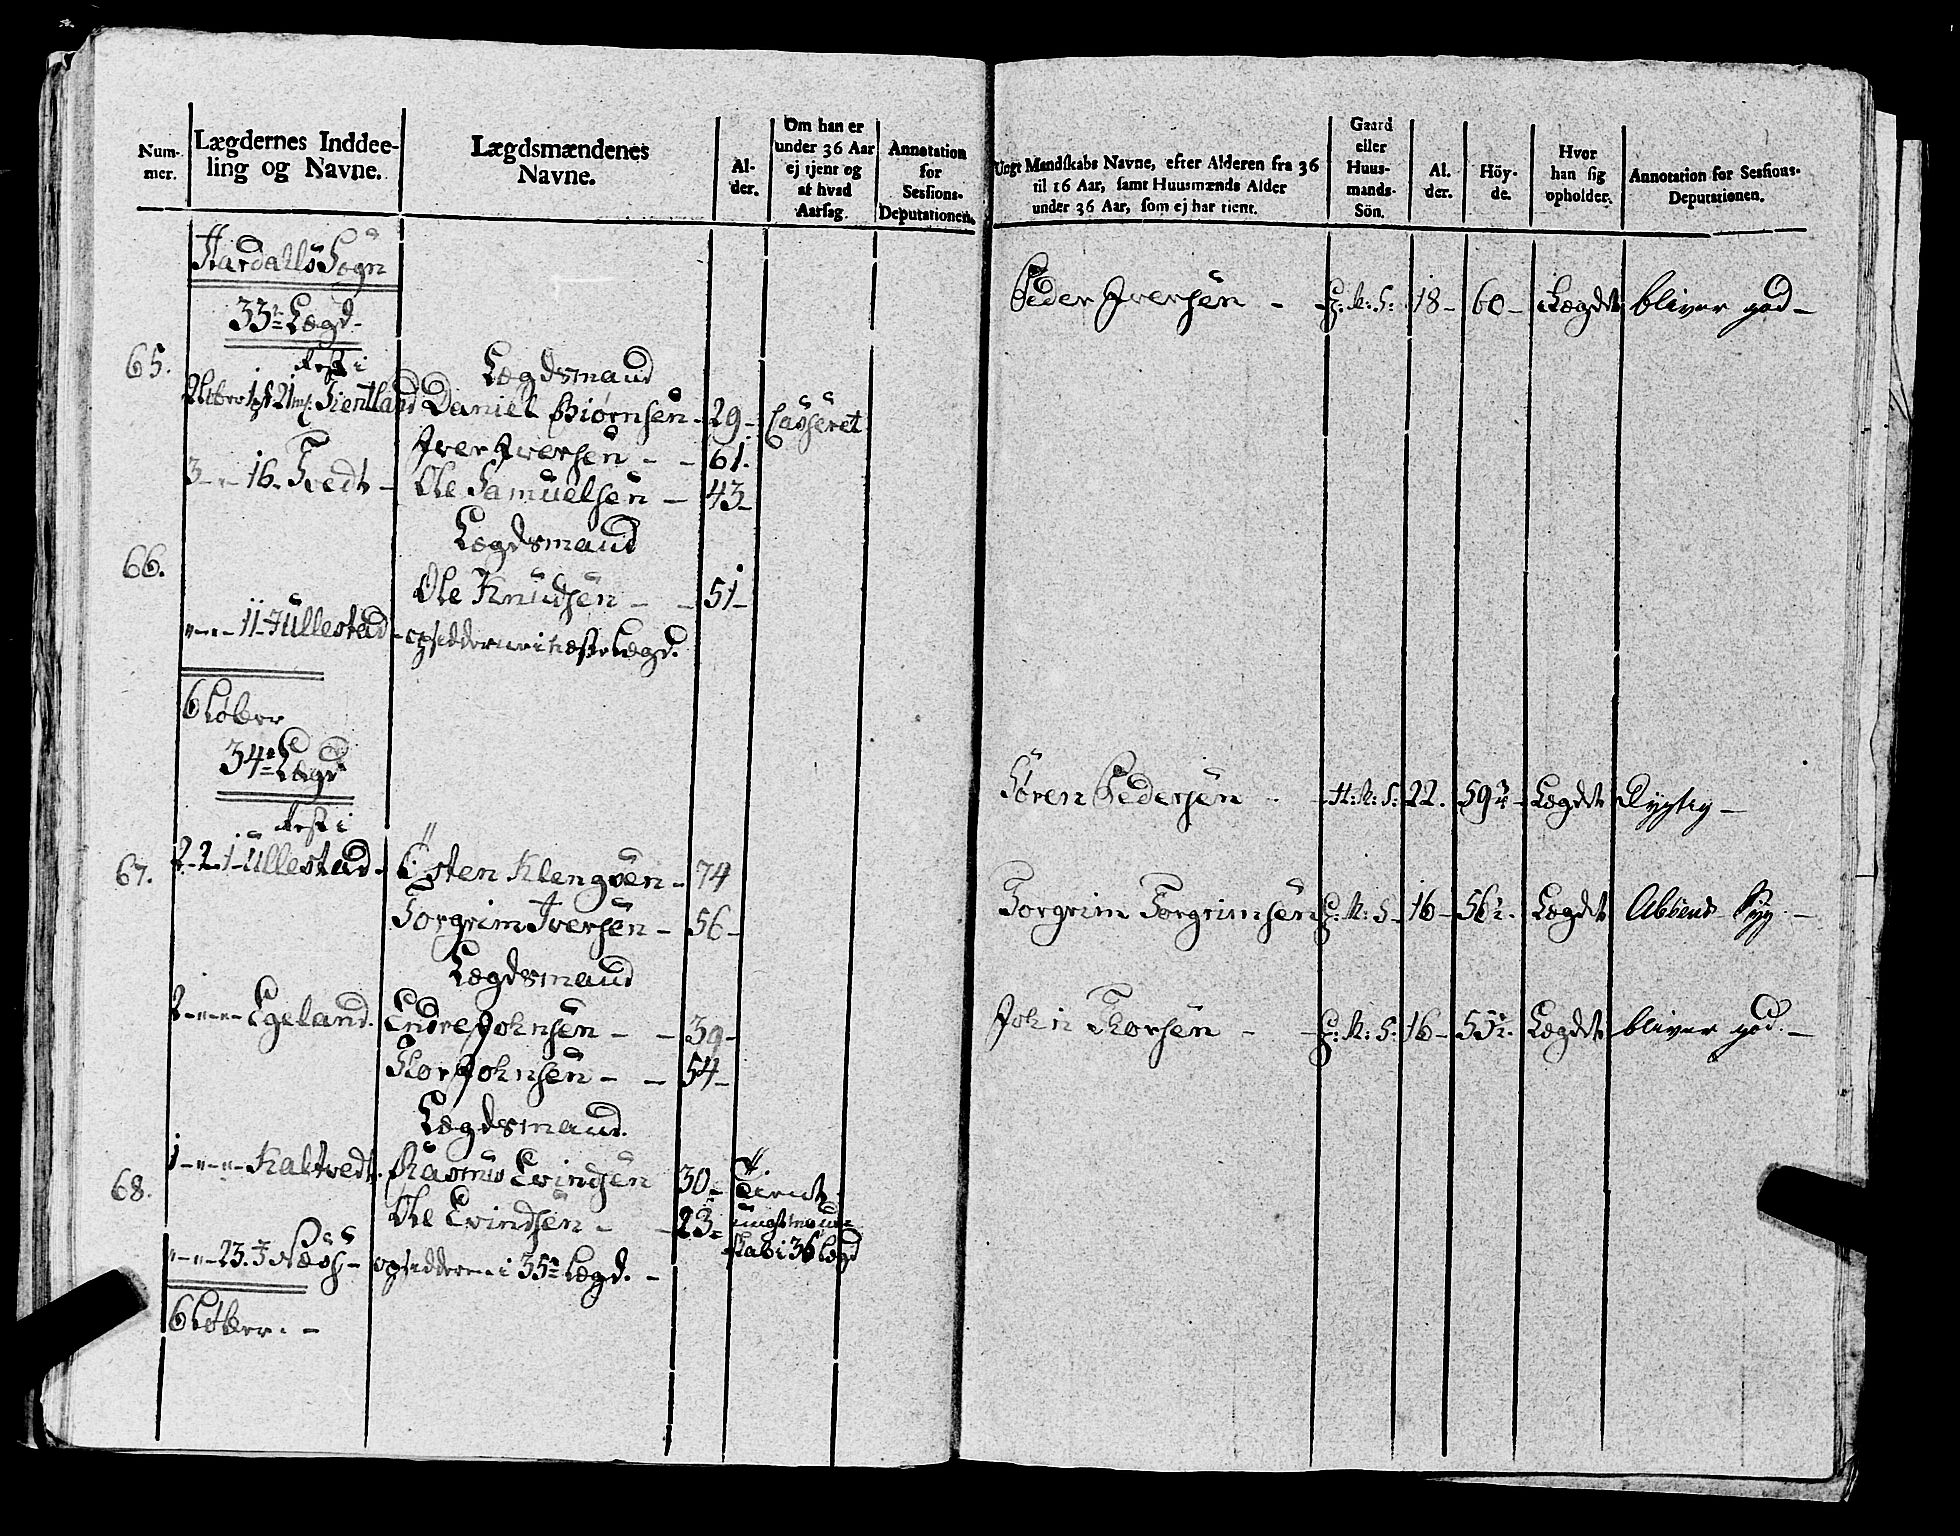 Num-
mer.
Lægdernes Inddee-
ling og Navne.
Lægdsmændenes
Navne.
Al-
der.
Om han er
under 36 Aar
ej tjent og
at hvad
Aarsag.
Annotation
for
Sessions-
Deputationen.
Hardahls Sogn
33te Lægd-
Rest i
65. Lægdsmand
Tientland Daniel Biørnsen - 29- Casseret
Iver Iversen - - 61.
3 - " 16- Tvedt - Ole Samuelsen - 43-
Lægdsmand
66.
Ole Knudsen - - 51-
" - " - 11 - Jullestad - opsidderne i næste Lægd.
6 Løber
34te Lægd
Rest i
67. 2 - 2 - 1 - Ullestad - Østen Klengsen - 74
Torgrim Iversen - 56-
Lægdsmand
2 - " - " - Egeland. Endre Johnsen - - 39-
Thor Johnsen - - 54-
Lægdsmand.
1 - " - " - Kaltvedt. Rasmus Evindsen 30- Tient
68.
Ole Evindsen - - 23- ungt mand-
skab i 36 Lægd
" - " - 23. I Næss - opsidderne i 35te Lægd. -
6 Løber. -
Ungt Mandskabs Navne, efter Alderen fra 36
til 16 Aar, samt Huusmænds Alder
under 36 Aar, som ej har tient.
Gaard
eller
Huus-
mands-
Sön.
Al.
der.
Höy-
de.
Hvor
han sig
opholder.
Annotation for Sessions-
Deputationen.
Peder Iversen - G: M: S: 18- 60- Lægdet bliver god -
Søren Pedersen - H: M: S: 22. 59½ - Lægdet Dygtig -
Torgrim Torgrimsen G: M: S - 16 - 56½. Lægdet Absent Syg. -
John Thorsen - - G: M: S: 16 - 55½. Lægdet bliver god. -